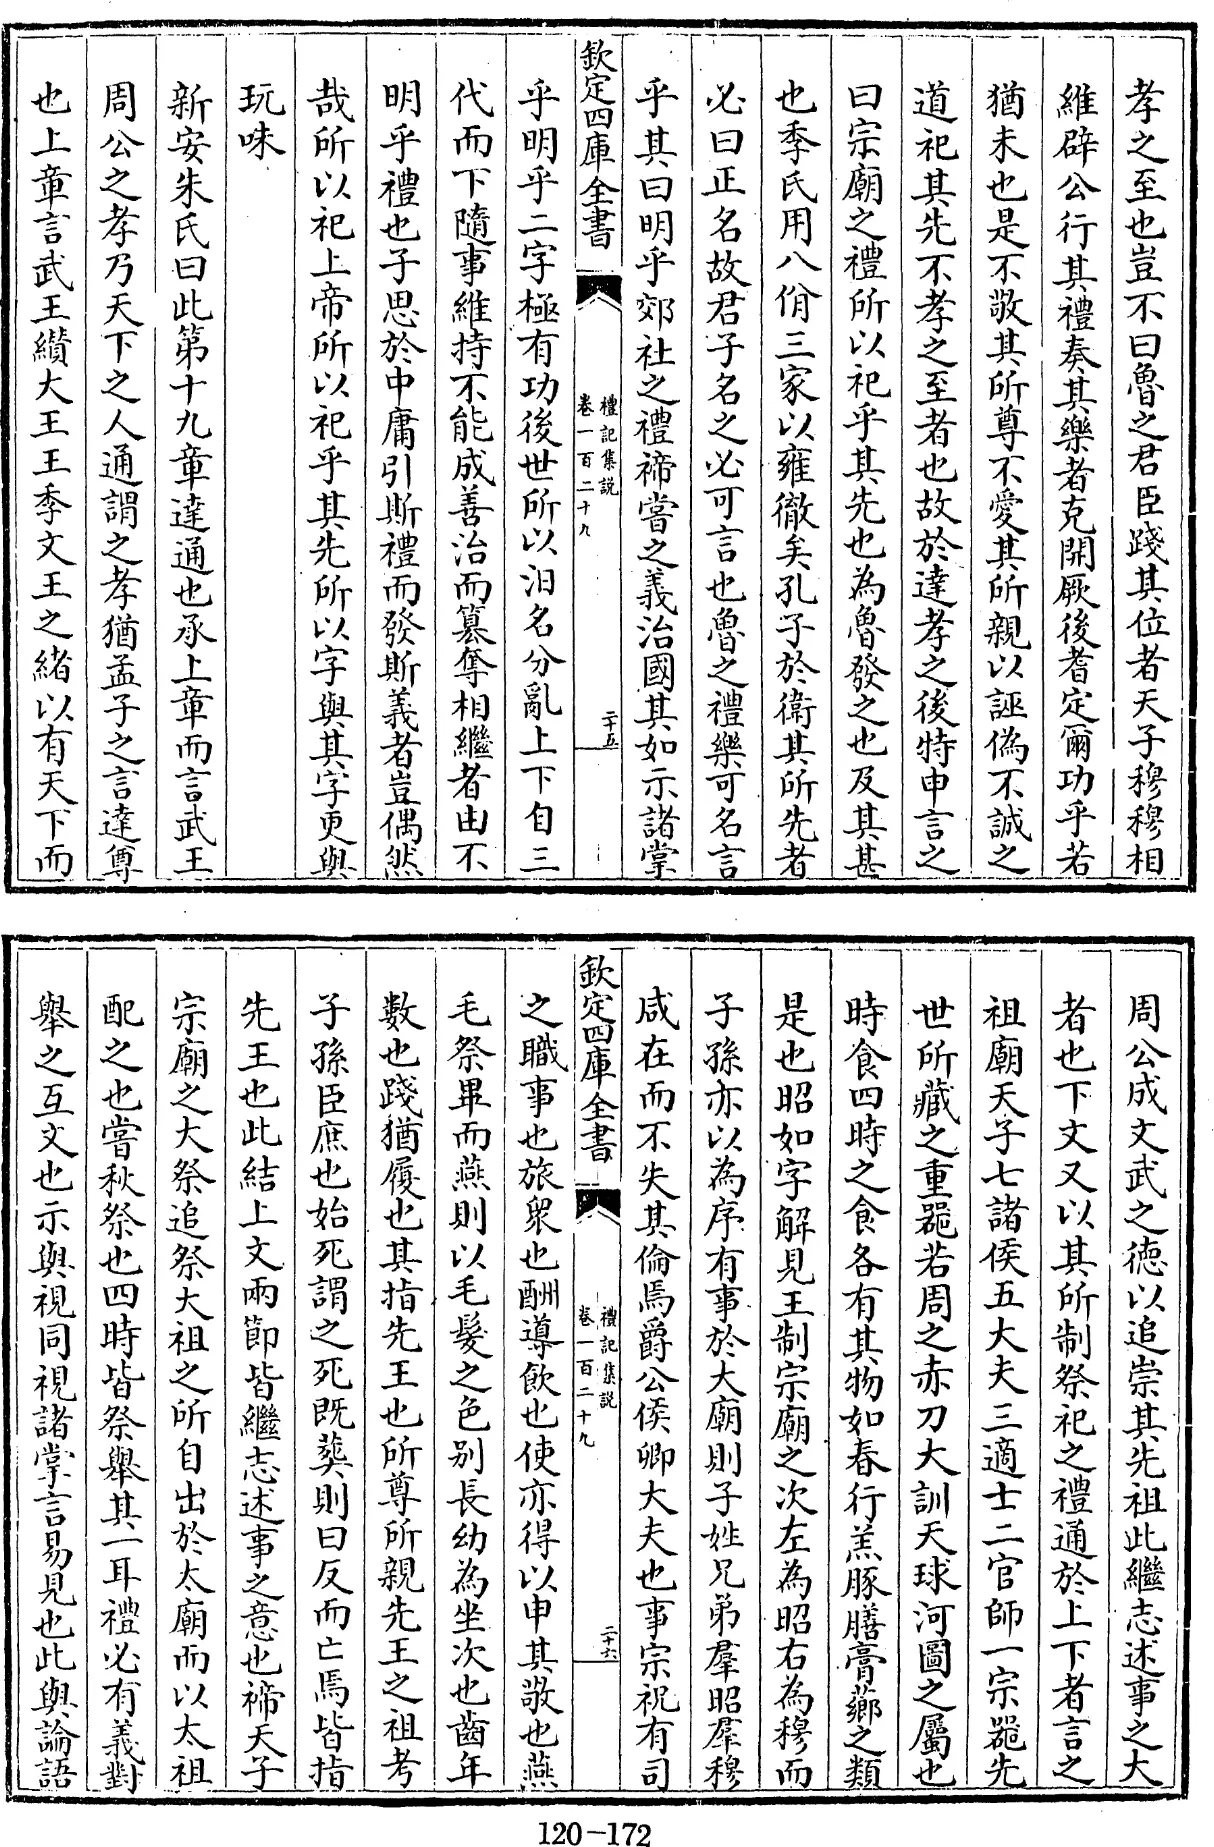 孝之至也豈不曰魯之君臣踐其位者天子穆穆相
維辟公行其禮奏其樂者克開厥後耆定爾功乎若
猶未也是不敬其所尊不愛其所親以誣偽不誠之
道祀其先不孝之至者也故於達孝之後特申言之
曰宗廟之禮所以祀乎其先也為魯發之也及其甚
也季氏用八佾三家以雍徹矣孔子於衛其所先者
必曰正名故君子名之必可言也魯之禮樂可名言
乎其曰明乎郊社之禮禘嘗之義治國其如示諸掌
欽定四庫全書
禮記集説
卷一百二十九
二十五
乎明乎二字極有功後世所以汩名分亂上下自三
代而下隨事維持不能成善治而篡奪相繼者由不
明乎禮也子思於中庸引斯禮而發斯義者豈偶然
哉所以祀上帝所以祀乎其先所以字與其字更與
玩味
新安朱氏曰此第十九章達通也承上章而言武王
周公之孝乃天下之人通謂之孝猶孟子之言達尊
也上章言武王纘大王王季文王之緒以有天下而
周公成文武之德以追崇其先祖此繼志述事之大
者也下文又以其所制祭祀之禮通於上下者言之
祖廟天子七諸侯五大夫三適士二官師一宗器先
世所藏之重器若周之赤刀大訓天球河圖之屬也
時食四時之食各有其物如春行羔豚膳膏薌之類
是也昭如字解見王制宗廟之次左為昭右為穆而
子孫亦以為序有事於大廟則子姓兄弟羣昭羣穆
咸在而不失其倫焉爵公侯卿大夫也事宗祝有司
欽定四庫全書
禮記集説
卷一百二十九
二十六
之職事也旅衆也酬導飲也使亦得以申其敬也燕
毛祭畢而燕則以毛髮之色别長幼為坐次也齒年
數也踐猶履也其指先王也所尊所親先王之祖考
子孫臣庶也始死謂之死既葬則曰反而亡焉皆指
先王也此結上文兩節皆繼志述事之意也禘天子
宗廟之大祭追祭大祖之所自出於太廟而以太祖
配之也嘗秋祭也四時皆祭舉其一耳禮必有義對
舉之互文也示與視同視諸掌言易見也此與論語
120-172